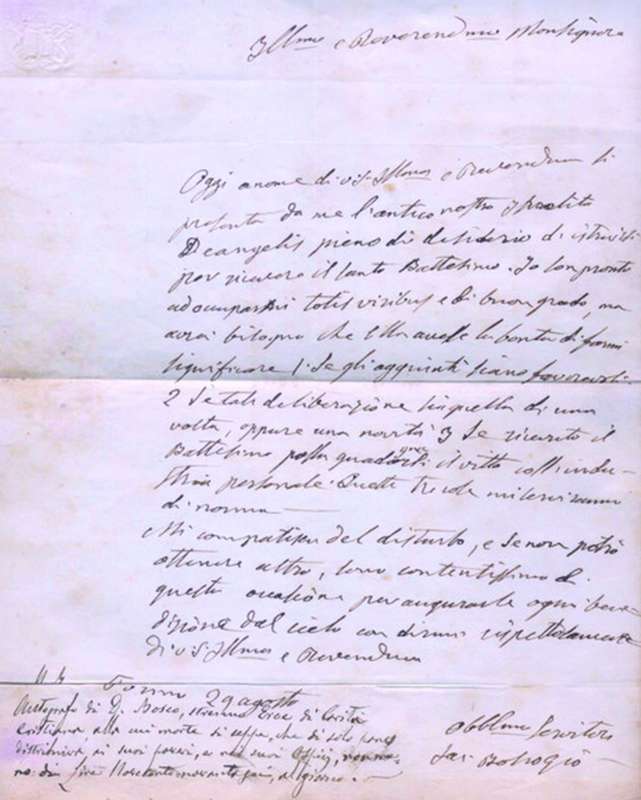 Illmo e Reverendmo Monsignore
Oggi a nome di V. S. Illma e Revendma si
presenta da me l'antico nostro
Deangelis pieno di desiderio di istruirsi
per ricevere il santo Battesimo. Io son pronto
ad occuparmi totis viribus e di buon grado, ma
avrei bisogno che Ella avesse la bontà di farmi
significare 1. Se gli aggiunti siano favorevoli.
2 Se tale deliberazione sia quella di una
volta, oppure una novità 3 Se ricevuto il
Battesimo possa guadagnarsi il vitto coll'indu-
stria personale. Queste tre cose mi serviranno
di norma
Mi compatisca del disturbo, e se non potrò
ottenere altro, sono contentissimo di
questa occasione per augurarle ogni bene-
dizione dal cielo con dirmi rispettosamente
di V. S. Illma e Revendma
29 agosto
Autografo di D. Bosco, Eroe di Carità
cristiana alla cui morte si seppe, che di solo pane
distribuiva ai suoi poveri, e ne' suoi
Obblmo Servitore
Sac. Bosco Gio